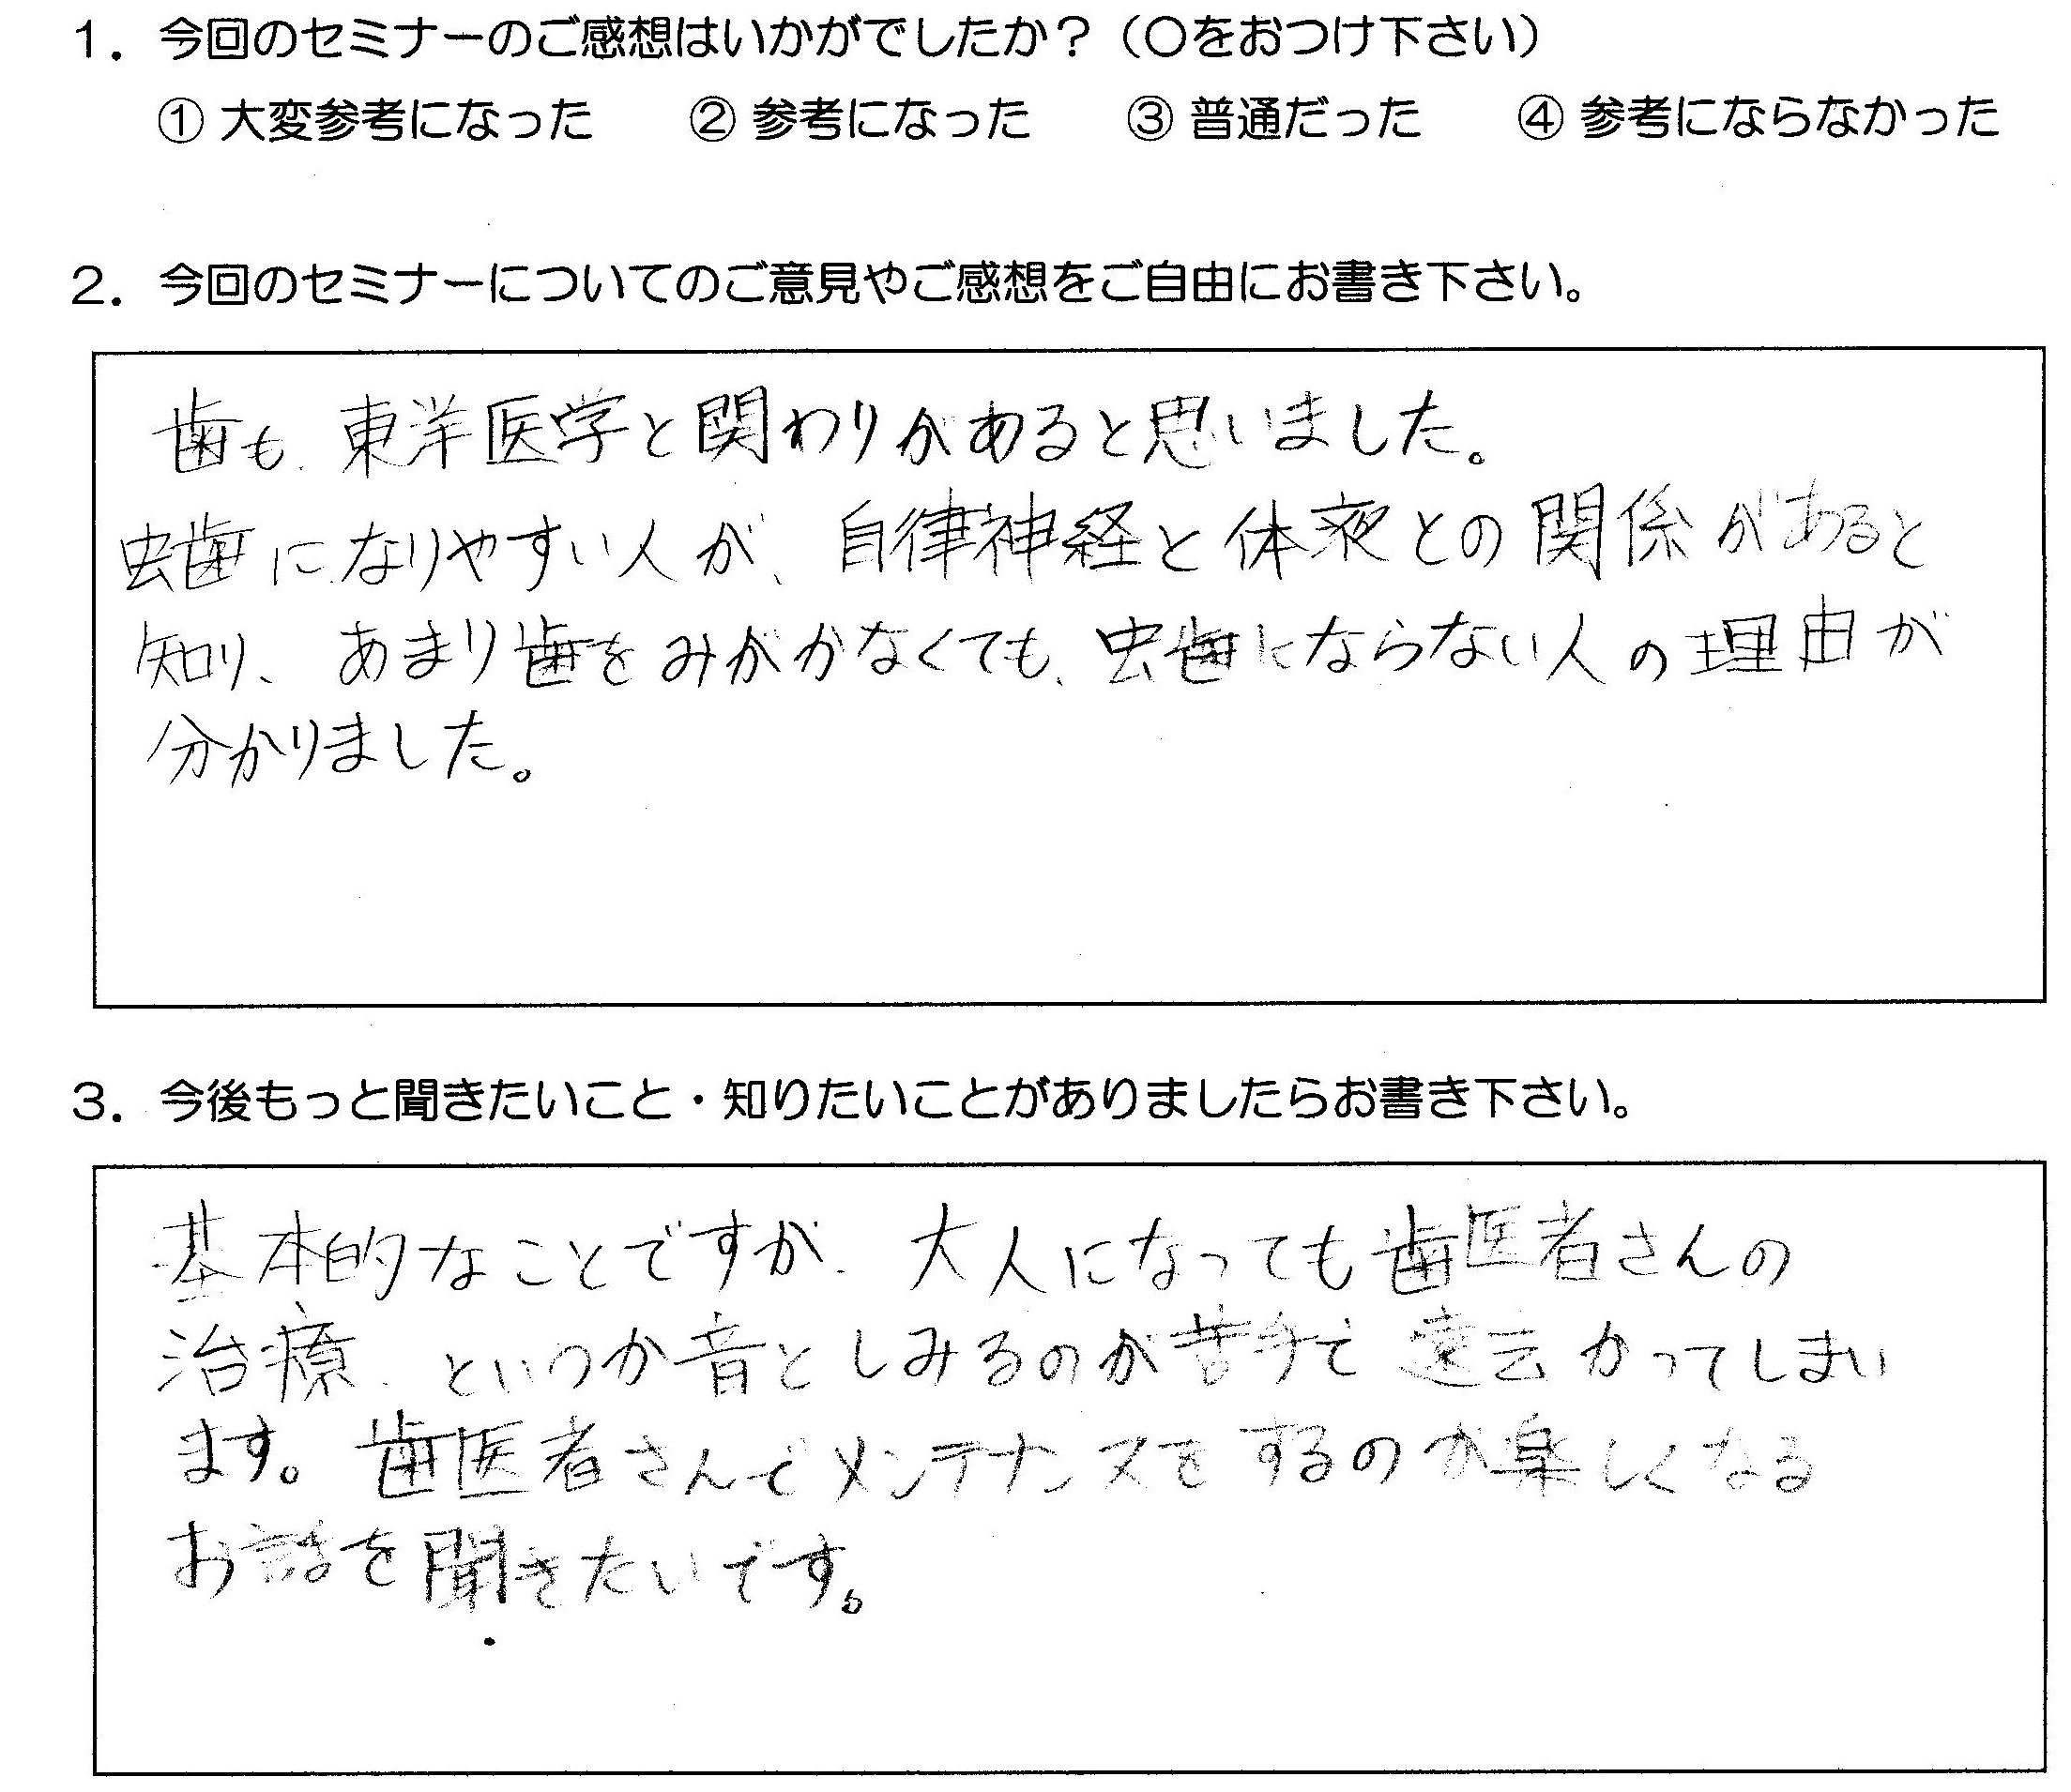 1. 今回のセミナーのご感想はいかがでしたか？（〇をおつけ下さい）
① 大変参考になった　② 参考になった　③ 普通だった　④ 参考にならなかった
2. 今回のセミナーについてのご意見やご感想をご自由にお書き下さい。
歯も、東洋医学と関わりがあると思いました。
虫歯になりやすい人が、自律神経と体液との関係があると
知り、あまり歯をみがかなくても、虫歯にならない人の理由が
分かりました。
3. 今後もっと聞きたいこと・知りたいことがありましたらお書き下さい。
基本的なことですが、大人になっても歯医者さんの
治療、というか音としみるのが苦手で遠去かってしまい
ます。歯医者さんでメンテナンスをするのが楽しくなる
お話を聞きたいです。